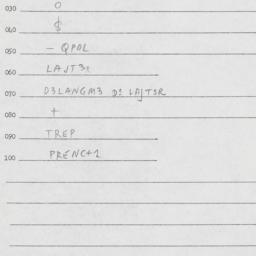 030 O
040 $
050 - QPOL
060 LAJT31
070 D3LANGM3 D1 LAJTSR
080 +
090 TREP
100 PRENC+1